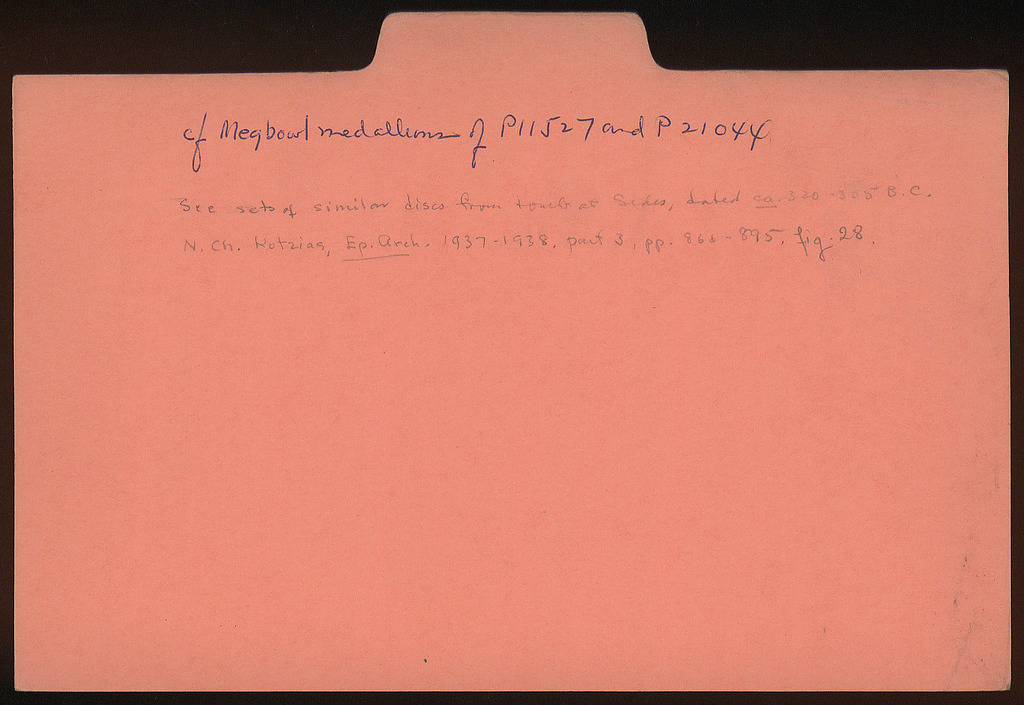 cf Megbowl medallions of P11527 and P 21044
See sets of similar discs from tomb at Sedes, dated ca. 320-305 B.C.
N. Ch. Kotzias, Ep. Arch. 1937-1938, part 3, pp. 866-895, fig. 28.